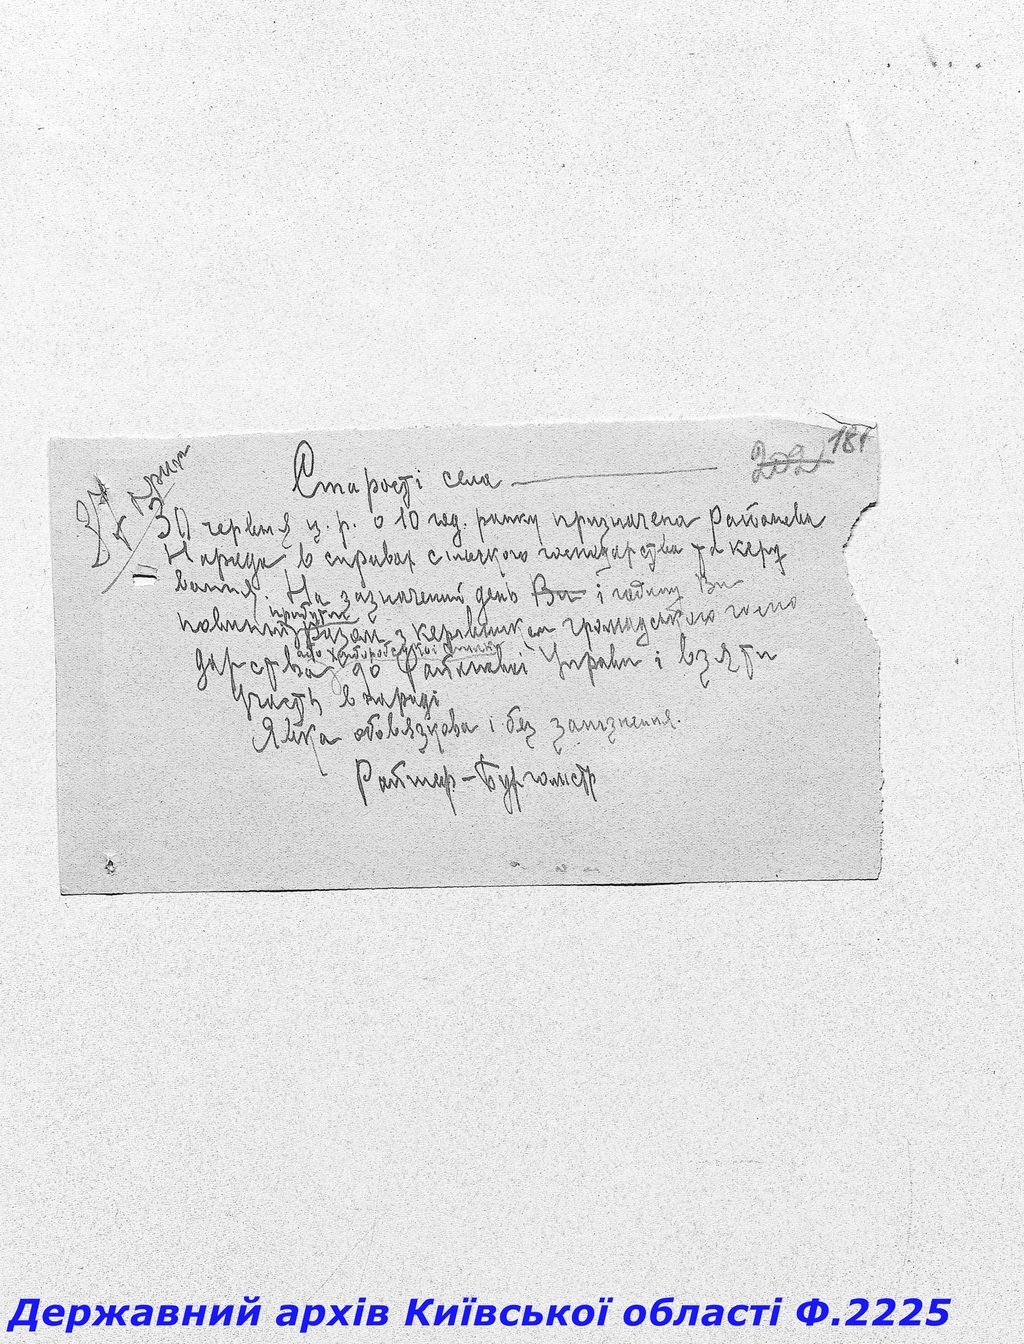 202 181
Старості села
30 червня ц. р. о 10 год. ранку призначена Районова
Нарада в справах сільского господарства та керу
вання. На зазначений день Ви і годину Ви
прибути
повинні разом з керівником громадського госпо
або хліборобської спілки
дарства до Районної Управи і взяти
участь в нараді
Явка обовязкова і без запізнення.
Райшеф-Бургомістр
Державний архів Київської області Ф.2225